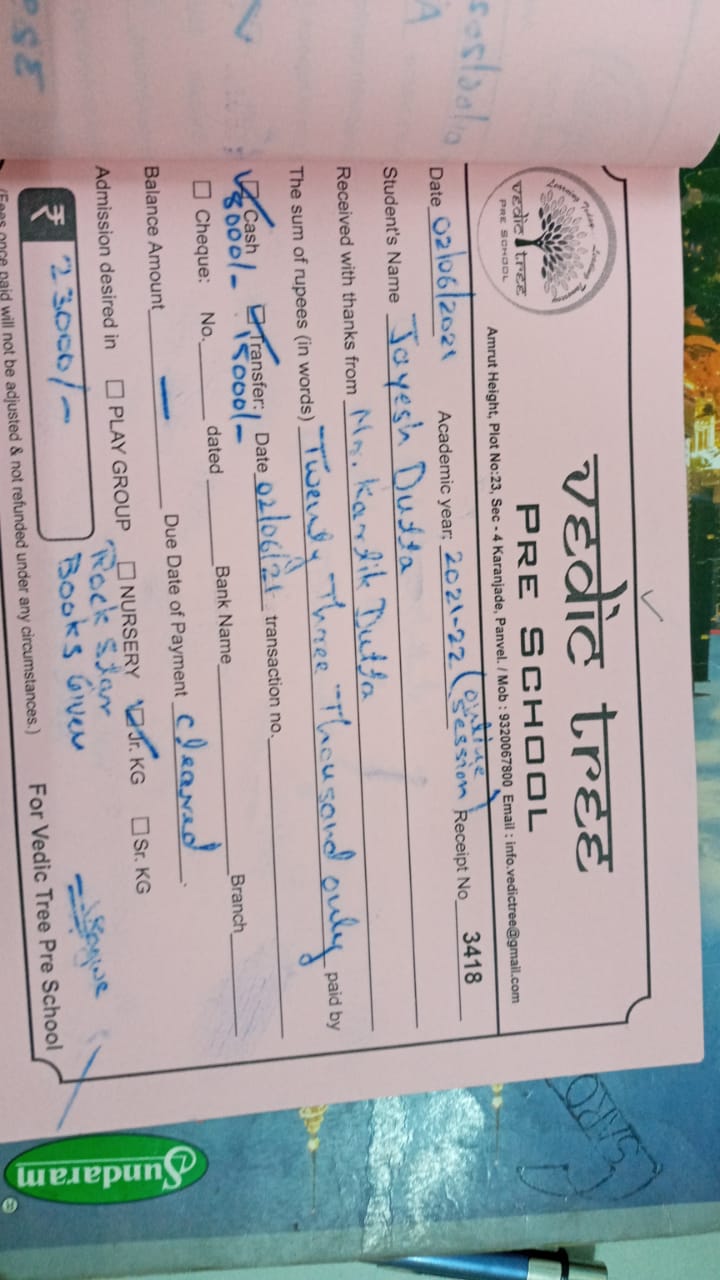 vedic tree
PRE SCHOOL
vedic tree
PRE SCHOOL
Amrut Height, Plot No:23, Sec - 4 Karanjade, Panvel. / Mob : 9320067800 Email : info.vedictree@gmail.com
Date 02/06/2021 Academic year: 2021-22 (online session) Receipt No 3418
Student's Name Jayesh Dutta
Received with thanks from Mr. Kartik Dutta
The sum of rupees (in words) Twenty Three Thousand only paid by
Cash Transfer: Date 02/06/21 transaction no.
8000/- 15000/-
Cheque: No. dated Bank Name Branch
Balance Amount — Due Date of Payment cleared.
Admission desired in PLAY GROUP NURSERY Jr. KG Sr. KG
₹ 23000/- Rock Star
Books Given
(Fees once paid will not be adjusted & not refunded under any circumstances.) For Vedic Tree Pre School
Sundaram